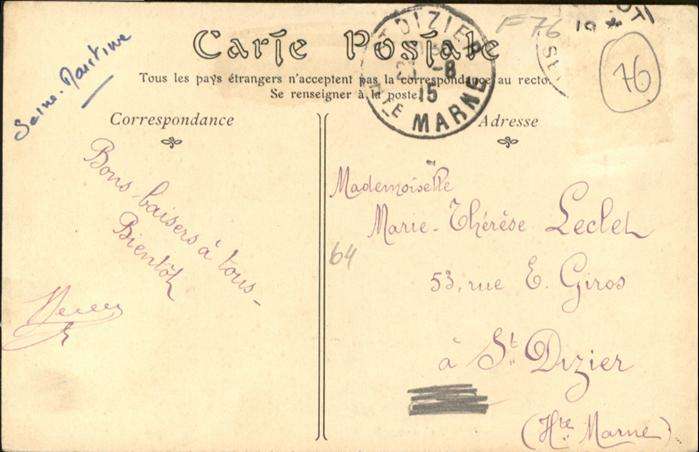 Seine-Maritime
Carte Postale
Tous les pays étrangers n'acceptent pas la correspondance au recto.
Se renseigner à la poste.
ST DIZIER
-8
15
HTE MARNE
F 76
76
Correspondance
Adresse
Bons baisers à tous_
Bientôt
Mademoiselle
Marie-Thérèse Leclet
64
53, rue E. Giros
à St. Dizier
(Hte Marne)